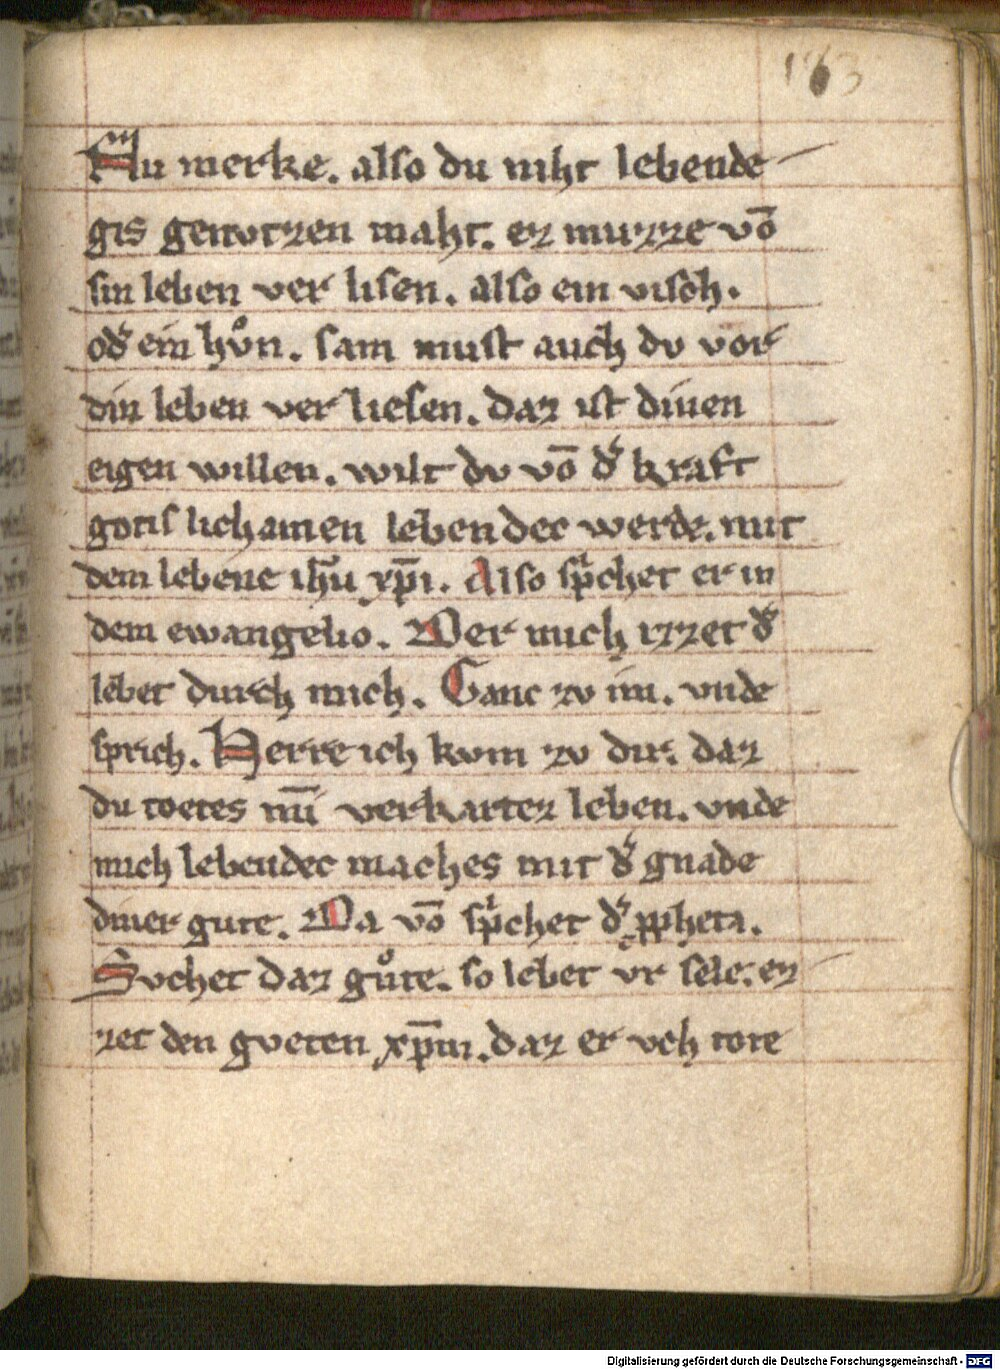 183
Nu merke. also du niht lebende
gis genotzen maht. ez muzze vō
sin leben ver lisen. also ein visch.
od̓ ein hůn. sam must auch dv vor
din leben ver liesen. daz ist dinen
eigen willen. wilt dv vō d̓ kraft
gotis lichamen lebendec werde. mit
dem lebene ihū xp̄i. Also sp̓chet er in
dem ewangelio. Der mich izzet d̓
lebet durch mich. Ganc zv im. vnde
sprich. Herre ich kvm zv dir. daz
du toetes mī verkartez leben. vnde
mich lebendec maches mit d̓ gnade
diner gute. Da vō sp̓chet d̓ ꝓpheta.
Svchet daz gůte. so lebet v̓r sele. ez
zet den gveten xp̄m. daz er vch tote
Digitalisierung gefördert durch die Deutsche Forschungsgemeinschaft - DFG